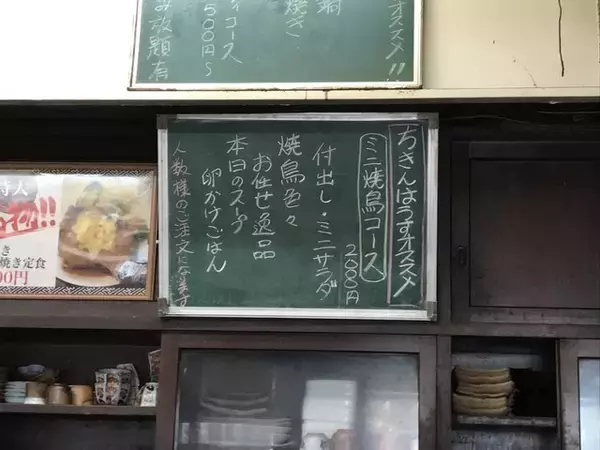 オススメ!!
鍋
焼き
コース
500円〜
み放題有
ちきんはうすオススメ
ミニ焼鳥コース
2000円
付出し・ミニサラダ
焼鳥色々
お任せ逸品
本日のスープ
卵かけごはん
人数様のご注文になります
物!!
き
焼き定食
00円